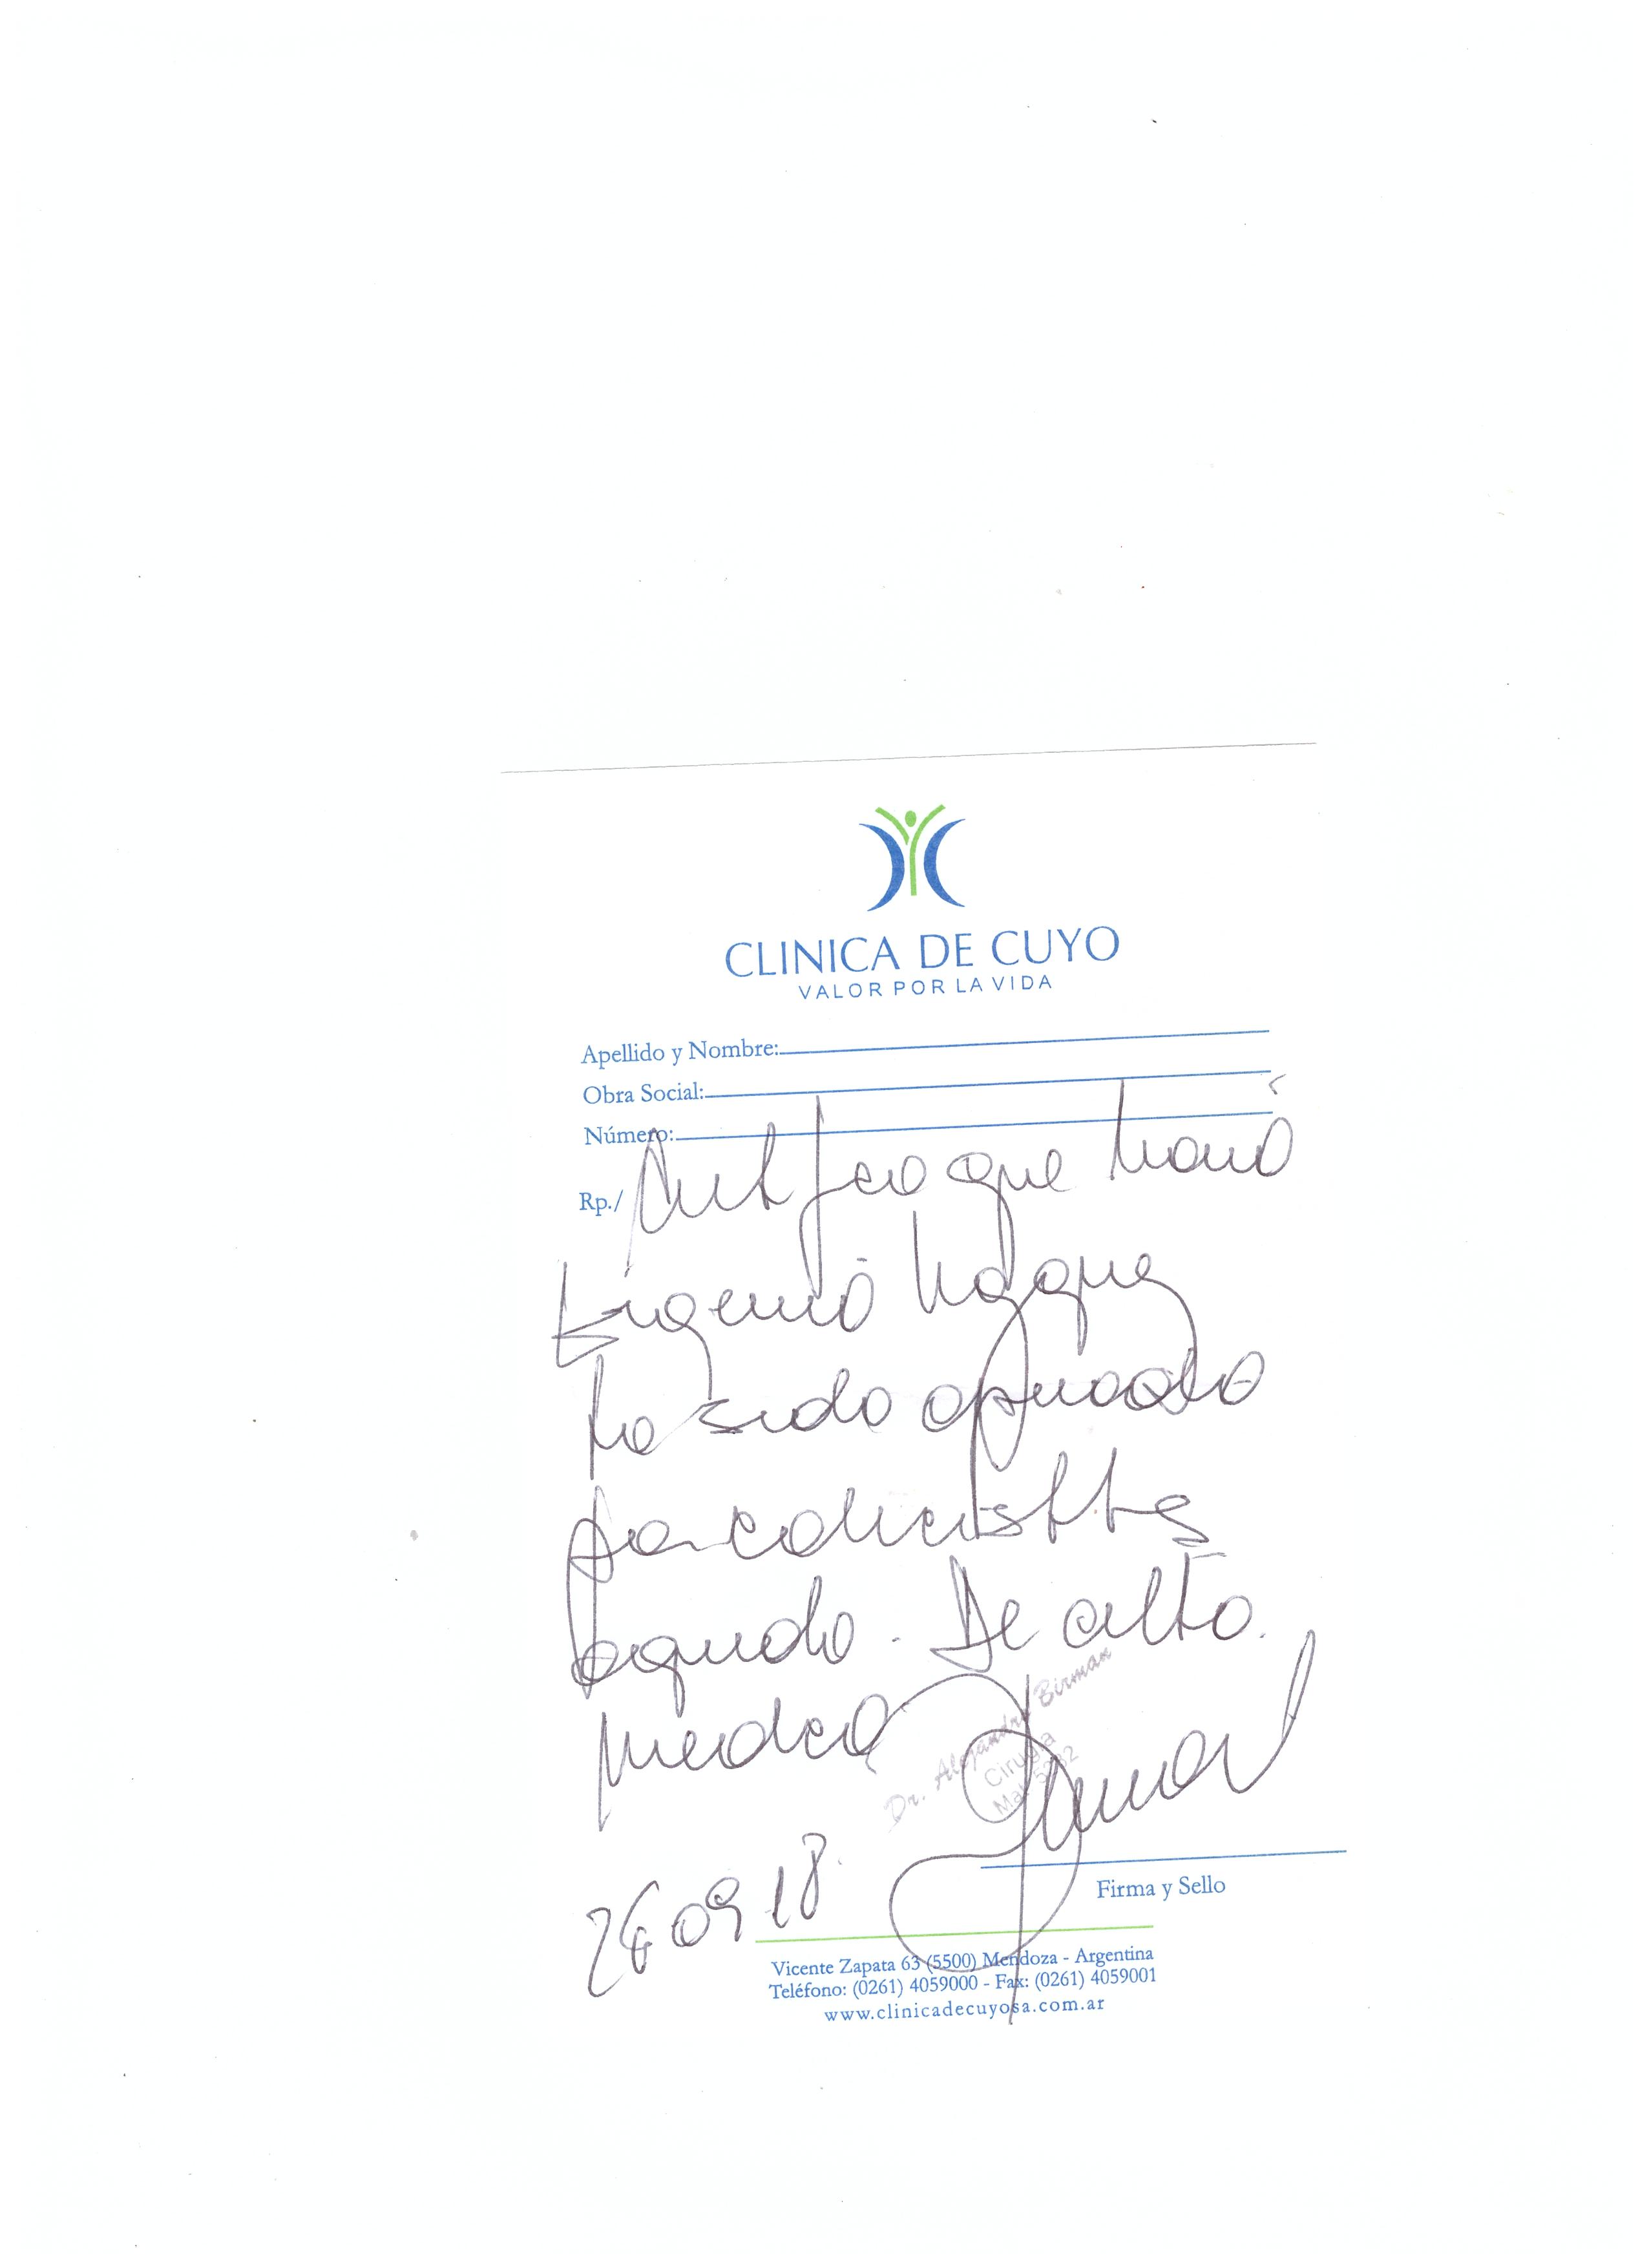 CLINICA DE CUYO
VALOR POR LA VIDA
Apellido y Nombre:
Obra Social:
Número:
Rp./ Certifico que María
Eugenia
ha sido operada
por colecistitis
aguda. De alta
médica
Dr. Alejandro Birman
Cirugía
Mat. 5232
26 09 18
Firma y Sello
Vicente Zapata 63 (5500) Mendoza - Argentina
Teléfono: (0261) 4059000 - Fax: (0261) 4059001
www.clinicadecuyosa.com.ar